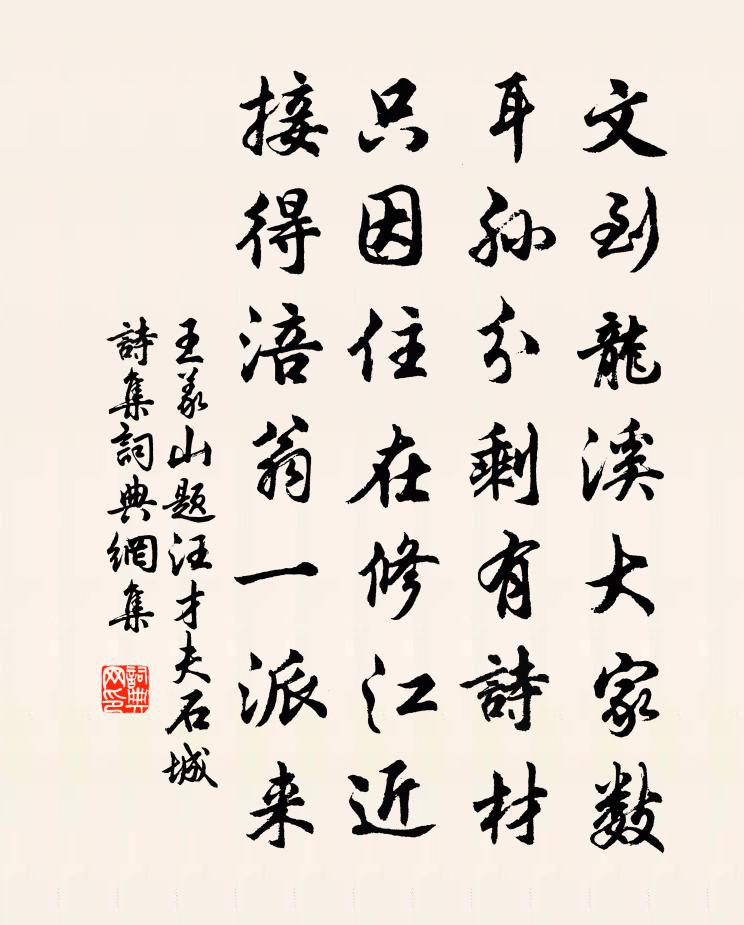 文到龍溪大家数
耳孙分剩有詩材
只因住在修江近
接得涪翁一派来
王義山题汪才夫石城
詩集詞典網集
詞典网印